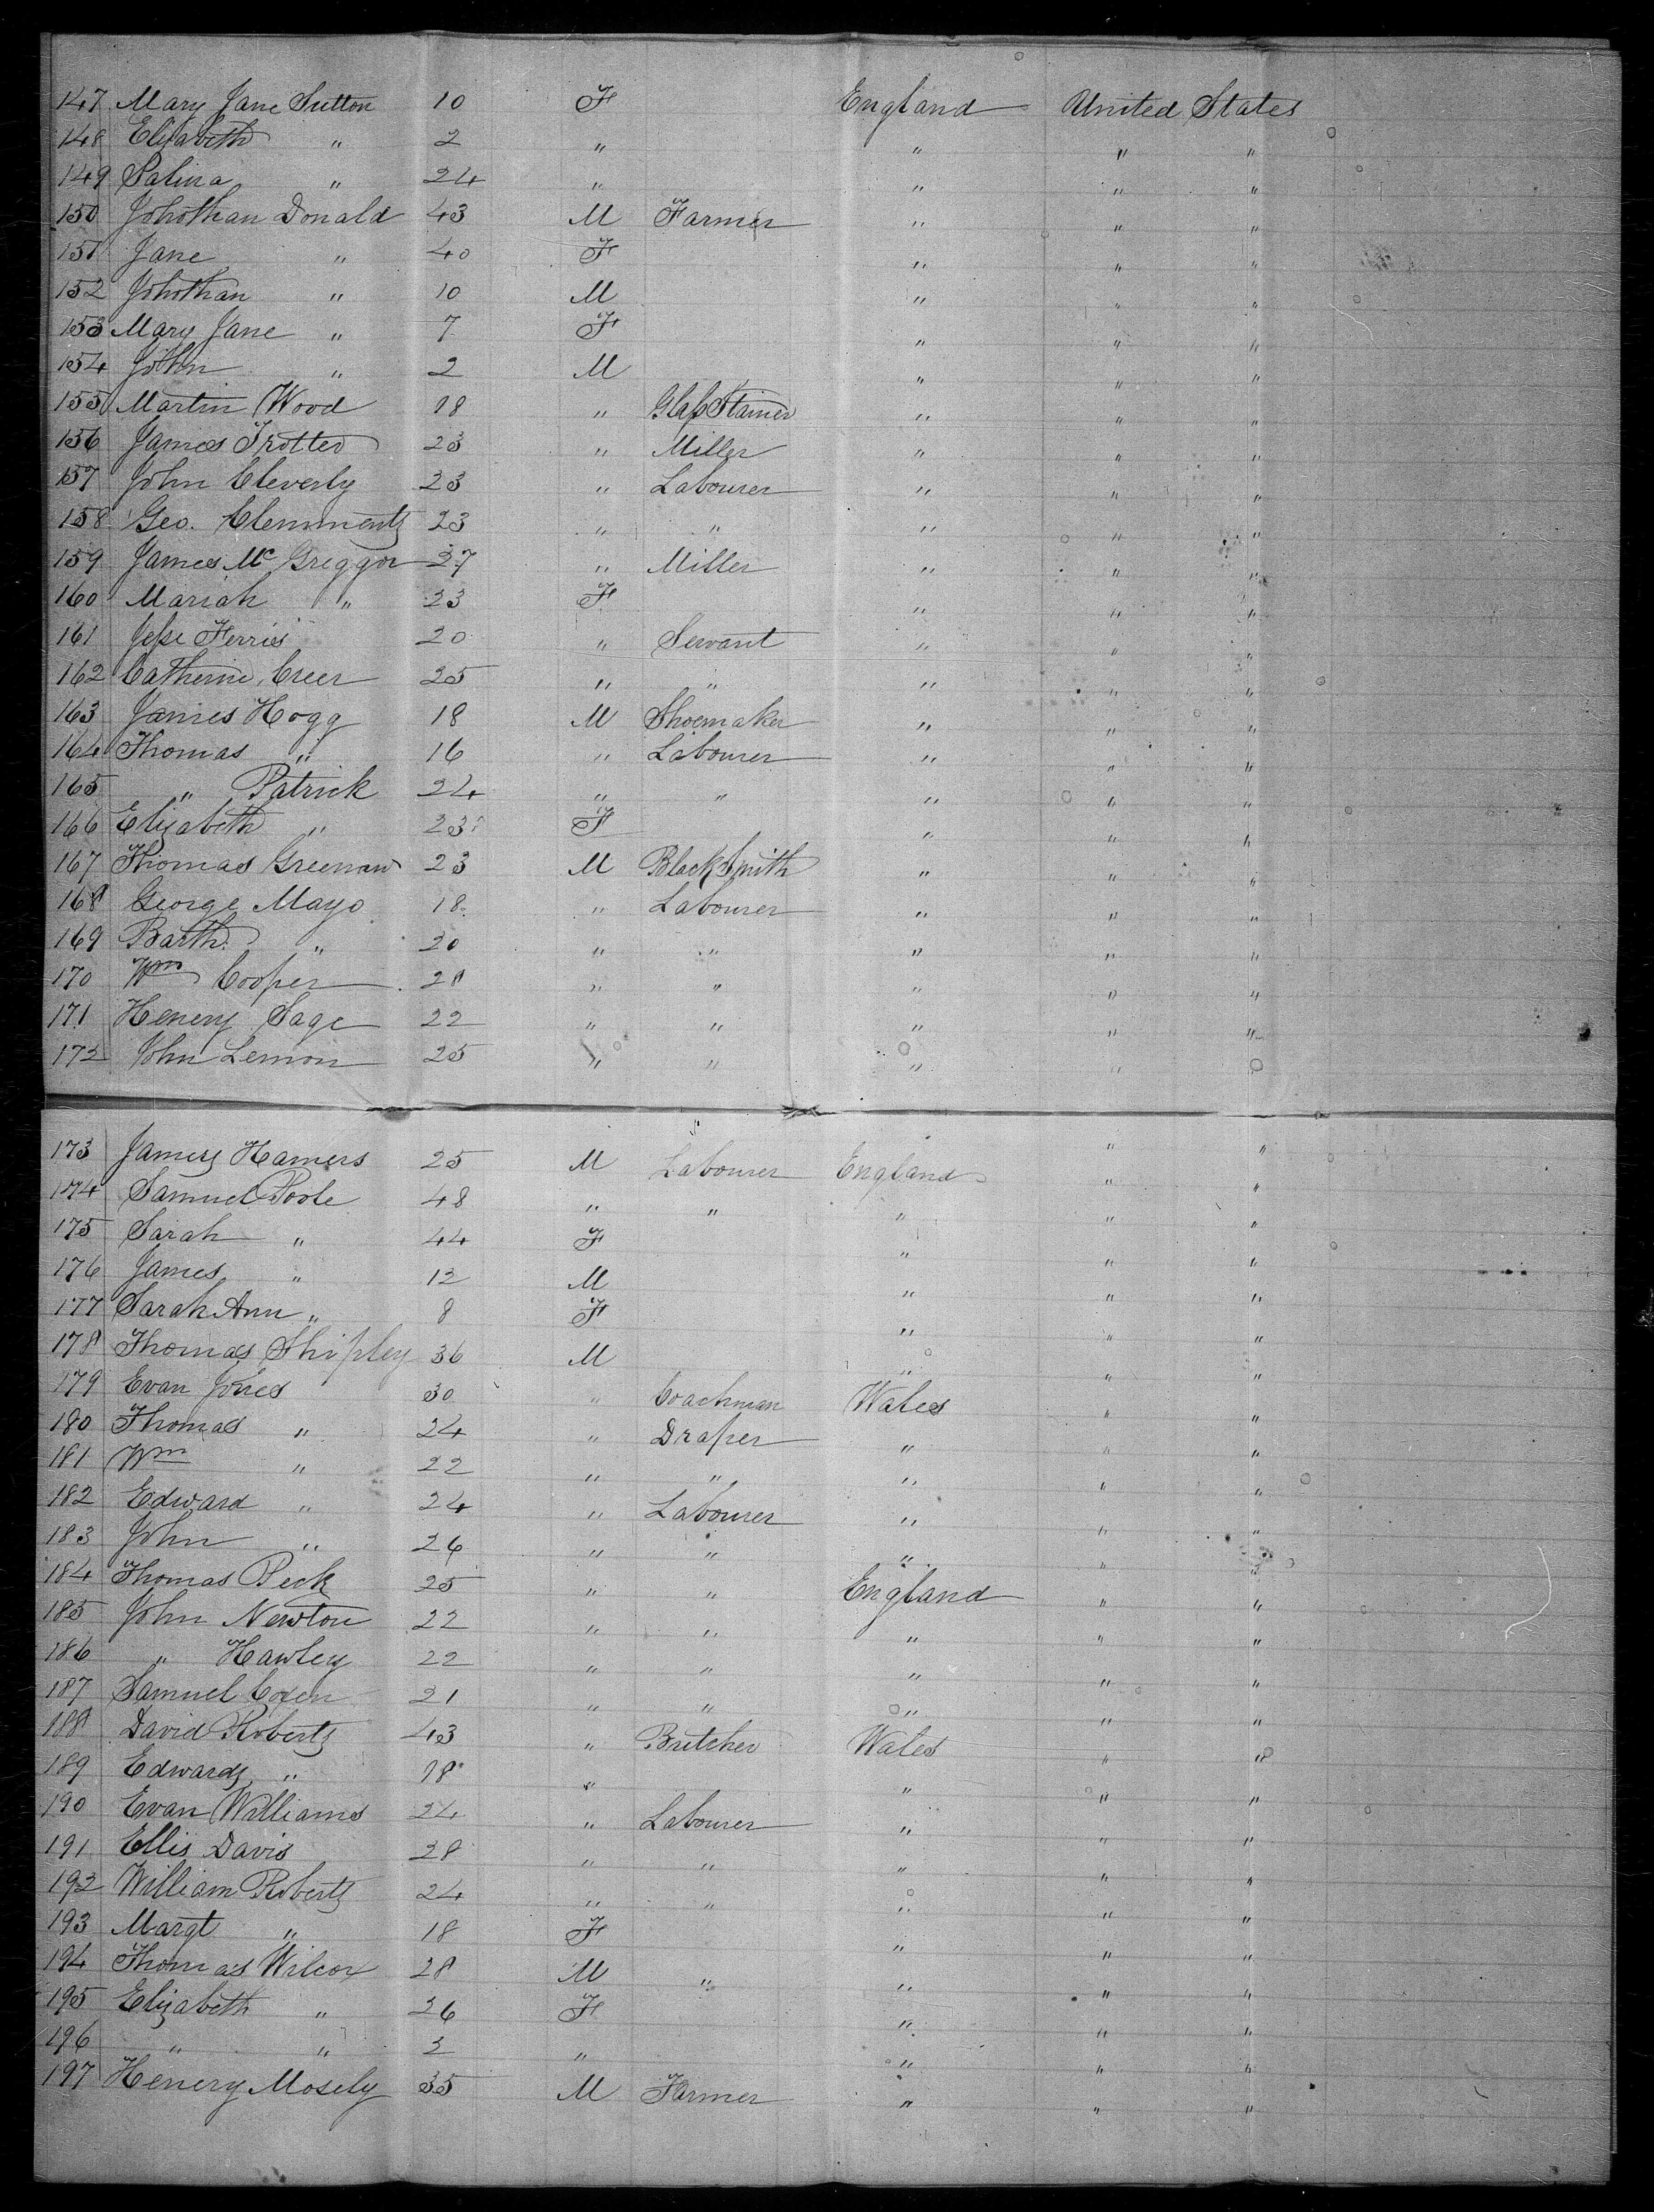 147 Mary Jane Sutton 10 F England United States
148 Elizabeth " 2 " " " "
149 Salina " 24 " " " "
150 Johothan Donald 43 M Farmer " " "
151 Jane " 40 F " " "
152 Johothan " 10 M " " "
153 Mary Jane " 7 F " " "
154 John " 2 M " " "
155 Martin Wood 18 " Glass Stainer " " "
156 James Trotter 23 " Miller " " "
157 John Cleverly 23 " Labourer " " "
158 Geo. Clemments 23 " " " " "
159 James Mc Greggor 27 " Miller " " "
160 Mariah " 23 F " " "
161 Jesse Ferris 20 " Servant " " "
162 Catherine Creer 25 " " " " "
163 James Hogg 18 M Shoemaker " " "
164 Thomas " 16 " Labourer " " "
165 " Patrick 24 " " " " "
166 Elizabeth " 23 F " " "
167 Thomas Greenaw 23 M BlackSmith " " "
168 George Mayo 18 " Labourer " " "
169 Barth. " 20 " " " " "
170 Wm Cooper 28 " " " " "
171 Henery Sage 22 " " " " "
172 John Lemon 25 " " " " "
173 James Hamers 25 M Labourer England " "
174 Samuel Poole 48 " " " " "
175 Sarah " 44 F " " "
176 James " 12 M " " "
177 Sarah Ann " 8 F " " "
178 Thomas Shipley 36 M " " "
179 Evan Jones 30 " Coachman Wales " "
180 Thomas " 24 " Draper " " "
181 Wm " 22 " " " " "
182 Edward " 24 " Labourer " " "
183 John " 26 " " " " "
184 Thomas Peck 25 " " England " "
185 John Newton 22 " " " " "
186 " Hawley 22 " " " " "
187 Samuel Coxen 21 " " " " "
188 David Roberts 43 " Butcher Wales " "
189 Edwards " 18 " " " "
190 Evan Williams 24 " Labourer " " "
191 Ellis Davis 28 " " " " "
192 William Roberts 24 " " " " "
193 Margt " 18 F " " "
194 Thomas Wilcox 28 M " " " "
195 Elizabeth " 26 F " " "
196 " " 3 " " " "
197 Henery Mosely 35 M Farmer " " "